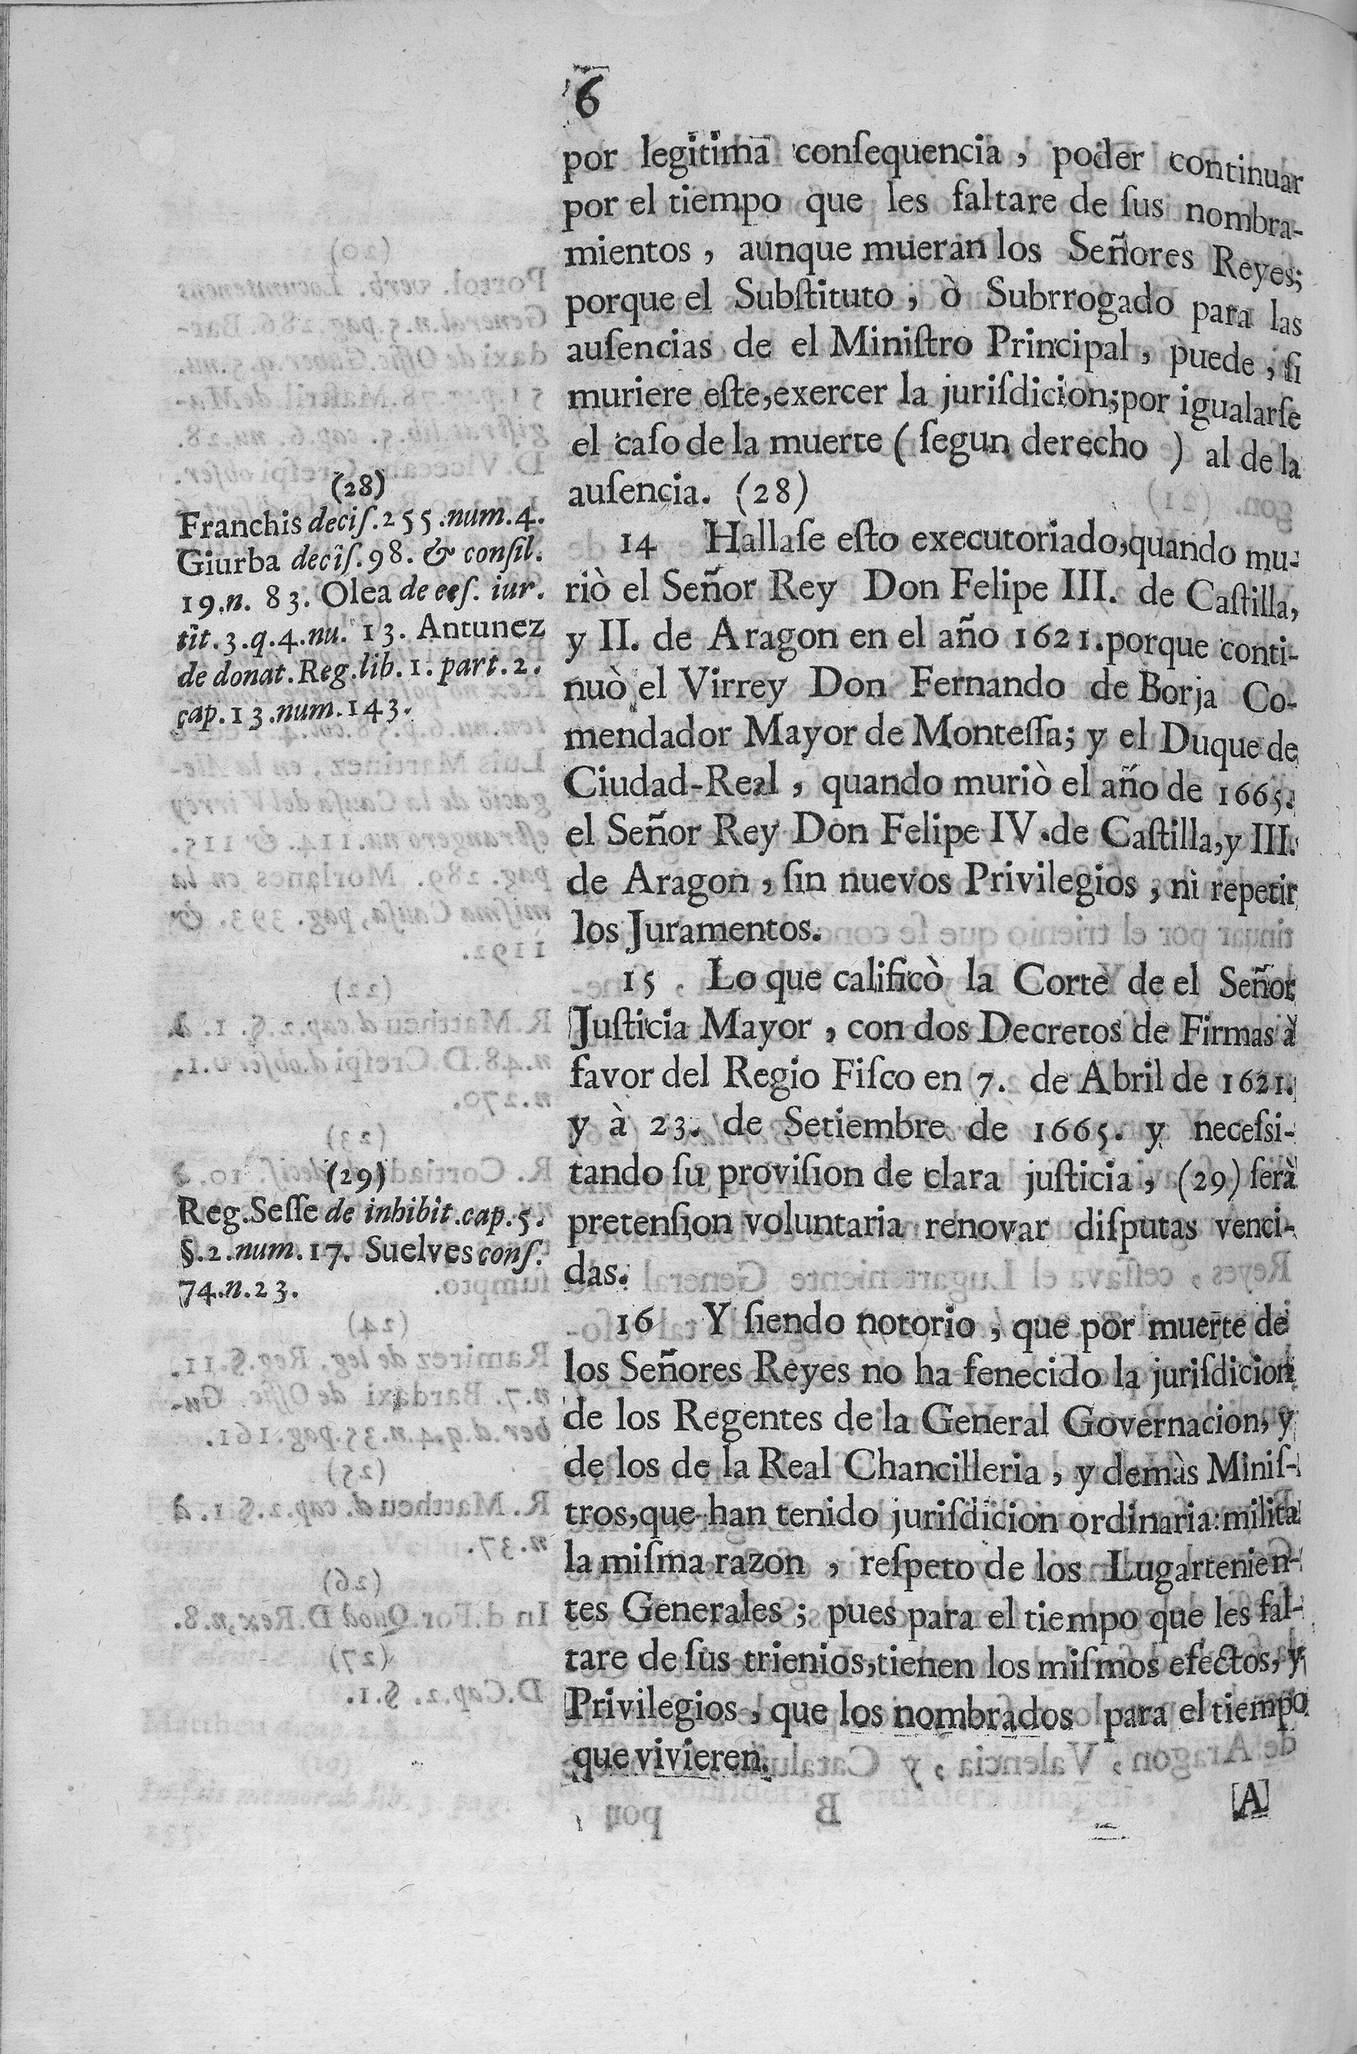 6
por legitima conſequencia, poder continuar
por el tiempo que les faltare de ſus nombra-
mientos, aunque mueran los Señores Reyes;
porque el Subſtituto, ò Subrrogado para las
auſencias de el Miniſtro Principal, puede, ſi
muriere eſte, exercer la juriſdicion; por igualarſe
el caſo de la muerte (ſegun derecho) al de la
auſencia. (28)
14 Hallaſe eſto executoriado, quando mu-
riò el Señor Rey Don Felipe III. de Caſtilla,
y II. de Aragon en el año 1621. porque conti-
nuò el Virrey Don Fernando de Borja Co-
mendador Mayor de Monteſſa; y el Duque de
Ciudad-Real, quando muriò el año de 1665.
el Señor Rey Don Felipe IV. de Caſtilla, y III.
de Aragon, ſin nuevos Privilegios, ni repetir
los Juramentos.
15 Lo que calificò la Corte de el Señor
Juſticia Mayor, con dos Decretos de Firmas à
favor del Regio Fiſco en 7. de Abril de 1621.
y à 23. de Setiembre de 1665. y neceſsi-
tando ſu proviſion de clara juſticia, (29) ſerà
pretenſion voluntaria renovar diſputas venci-
das.
16 Y ſiendo notorio, que por muerte de
los Señores Reyes no ha fenecido la juriſdicion
de los Regentes de la General Governacion, y
de los de la Real Chancilleria, y demàs Miniſ-
tros, que han tenido juriſdicion ordinaria: milita
la miſma razon, reſpeto de los Lugartenien-
tes Generales; pues para el tiempo que les fal-
tare de ſus trienios, tienen los miſmos efectos, y
Privilegios, que los nombrados para el tiempo
que vivieren.
[A]
(28)
Franchis deciſ. 255. num. 4.
Giurba deciſ. 98. & conſil.
19. n. 83. Olea de ceſ. iur.
tit. 3. q. 4. nu. 13. Antunez
de donat. Reg. lib. 1. part. 2.
cap. 13. num. 143.
(29)
Reg. Seſſe de inhibit. cap. 5.
§. 2. num. 17. Suelves conſ.
74. n. 23.